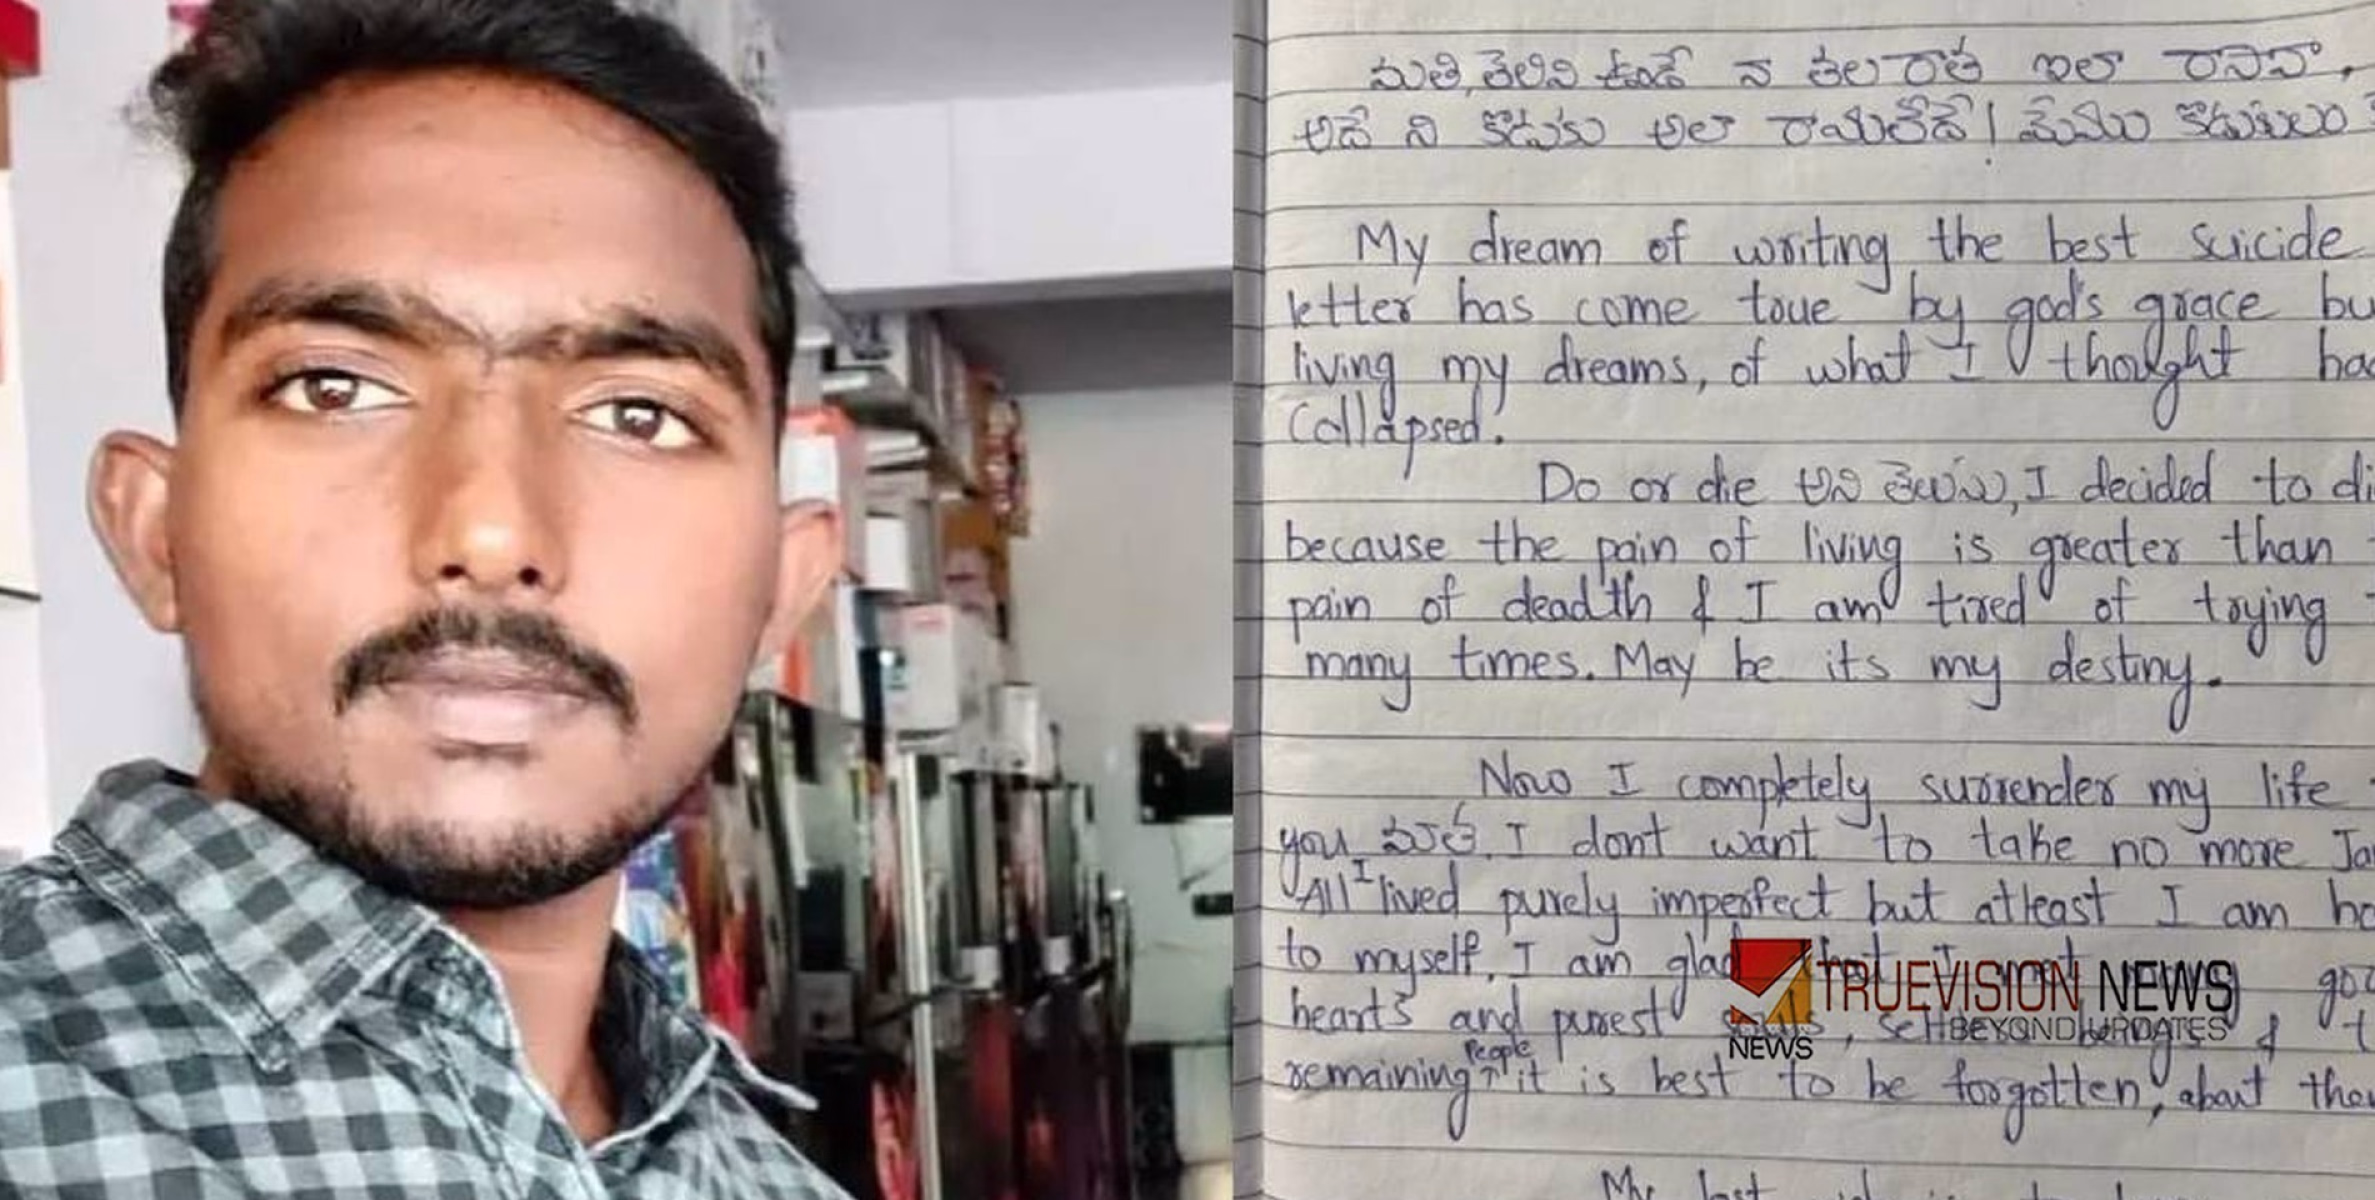 మతి, తెలివి ఉండే న తల రాత ఇలా రాసినా,
అదే ని కొడుకు అలా రాయలేదే! మేము కొడుకులం
My dream of writing the best suicide
letter has come true by god's grace bu
living my dreams, of what I thought ha
Collapsed.
Do or die అని తెలుసు, I decided to di
because the pain of living is greater than
pain of deadth & I am tired of trying
many times. May be its my destiny.
Now I completely surrender my life
you I dont want to take no more Ja
All I lived purely imperfect but atleast I am ho
to myself. I am glad that I met
hearts and purest souls
People
remaining it is best to be forgotten, about the
My last
TRUEVISION NEWS
BEYOND UPDATES
NEWS